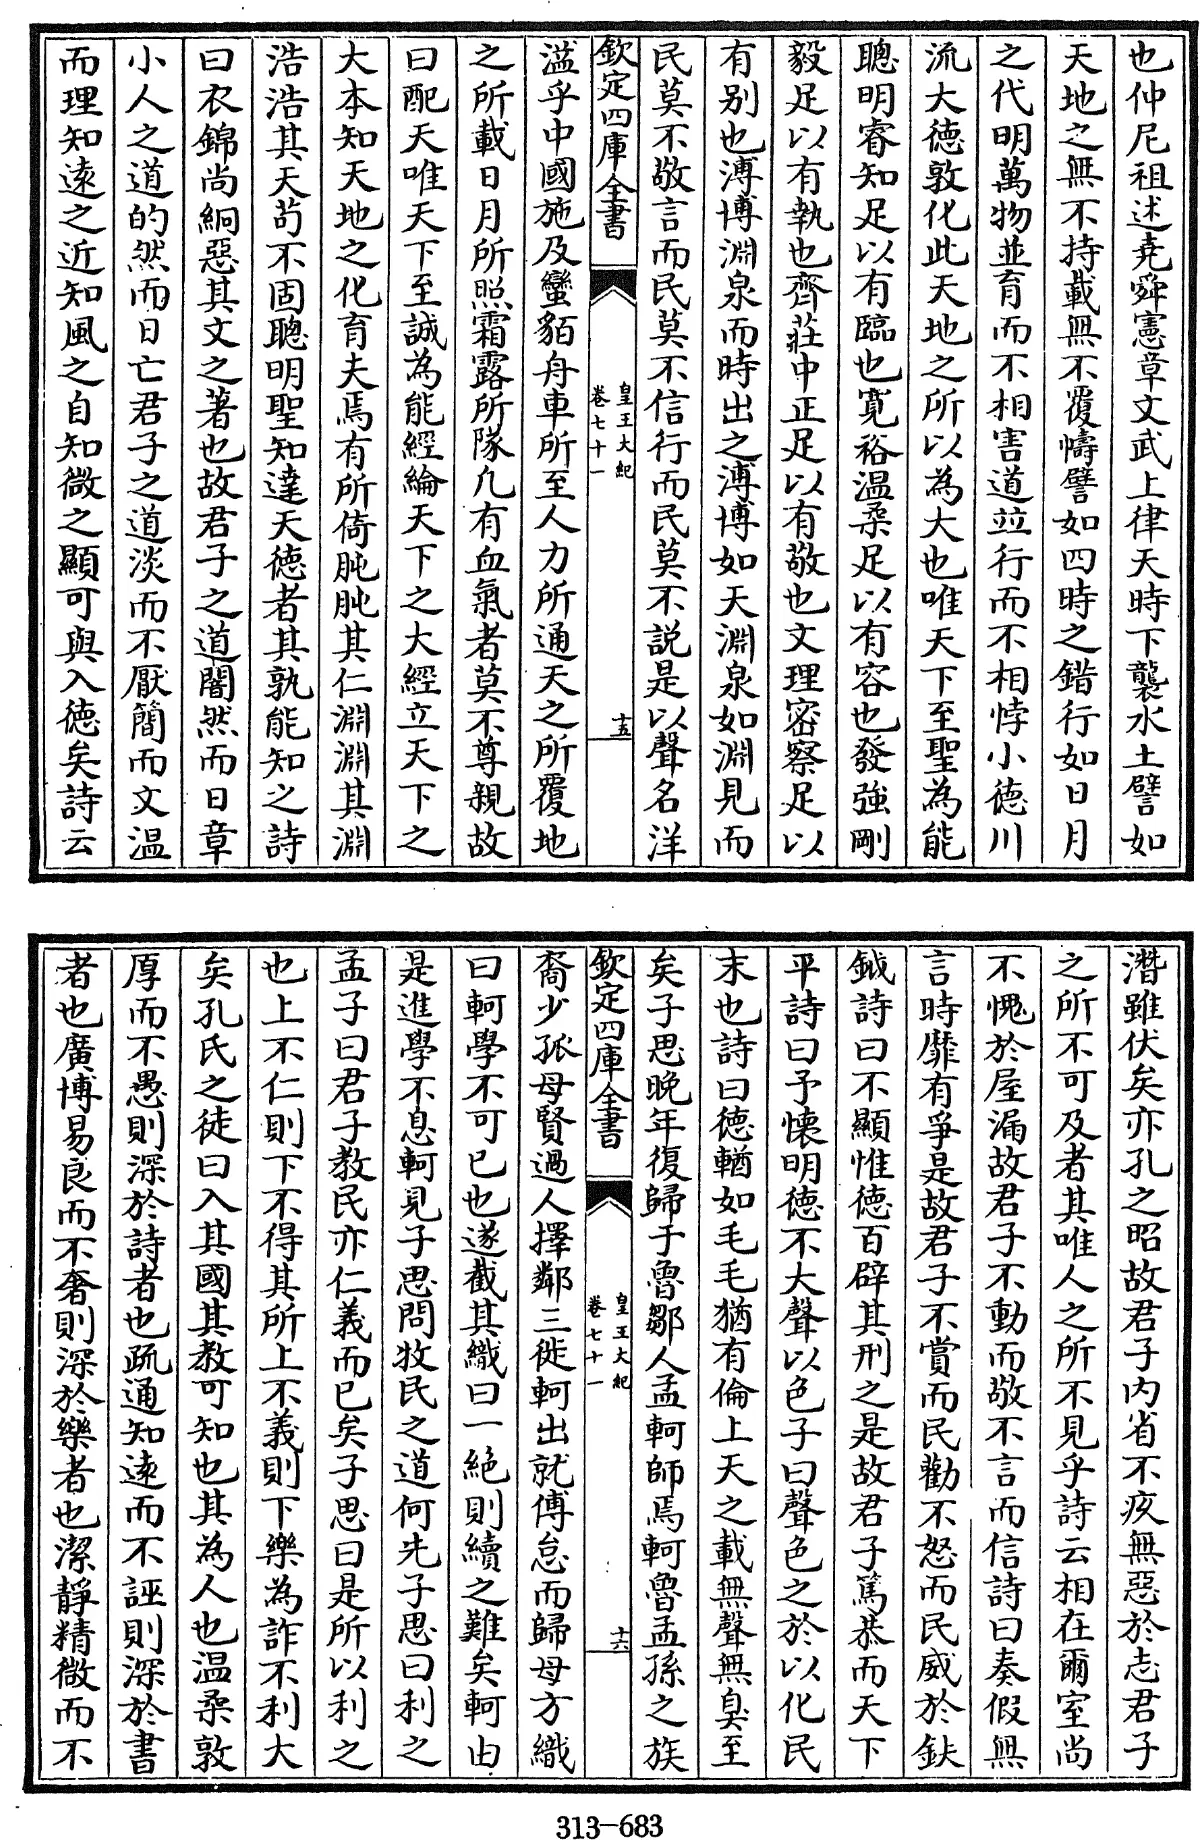 也仲尼祖述堯舜憲章文武上律天時下襲水土譬如
天地之無不持載無不覆幬譬如四時之錯行如日月
之代明萬物並育而不相害道竝行而不相悖小徳川
流大徳敦化此天地之所以為大也唯天下至聖為能
聰明睿知足以有臨也寛裕温柔足以有容也發強剛
毅足以有執也齊莊中正足以有敬也文理密察足以
有别也溥博淵泉而時出之溥博如天淵泉如淵見而
民莫不敬言而民莫不信行而民莫不説是以聲名洋
欽定四庫全書
皇王大紀
卷七十一
十五
溢乎中國施及蠻貊舟車所至人力所通天之所覆地
之所載日月所照霜露所隊凡有血氣者莫不尊親故
曰配天唯天下至誠為能經綸天下之大經立天下之
大本知天地之化育夫焉有所倚肫肫其仁淵淵其淵
浩浩其天茍不固聰明聖知達天徳者其孰能知之詩
曰衣錦尚絅惡其文之著也故君子之道闇然而日章
小人之道的然而日亡君子之道淡而不厭簡而文温
而理知逺之近知風之自知微之顯可與入徳矣詩云
潛雖伏矣亦孔之昭故君子内省不疚無惡於志君子
之所不可及者其唯人之所不見乎詩云相在爾室尚
不愧於屋漏故君子不動而敬不言而信詩曰奏假無
言時靡有爭是故君子不賞而民勸不怒而民威於鈇
鉞詩曰不顯惟徳百辟其刑之是故君子篤恭而天下
平詩曰予懐明徳不大聲以色子曰聲色之於以化民
末也詩曰徳輶如毛毛猶有倫上天之載無聲無臭至
矣子思晚年復歸于魯鄒人孟軻師焉軻魯孟孫之族
欽定四庫全書
皇王大紀
卷七十一
十六
裔少孤母賢過人擇鄰三徙軻出就傅怠而歸母方織
曰軻學不可已也遂截其織曰一絶則續之難矣軻由
是進學不息軻見子思問牧民之道何先子思曰利之
孟子曰君子教民亦仁義而已矣子思曰是所以利之
也上不仁則下不得其所上不義則下樂為詐不利大
矣孔氏之徒曰入其國其教可知也其為人也温柔敦
厚而不愚則深於詩者也疏通知逺而不誣則深於書
者也廣博易良而不奢則深於樂者也潔靜精微而不
313-683